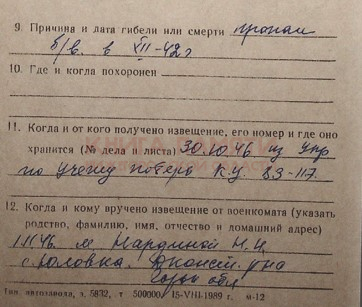 9. Причина и дата гибели или смерти пропал
б/в. в XII-42г
10. Где и когда похоронен
11. Когда и от кого получено извещение, его номер и где оно
хранится (№ дела и листа) 30.10.46 из Упр
по учету потерь К.У. 83-117.
12. Когда и кому вручено извещение от военкомата (указать
родство, фамилию, имя, отчество и домашний адрес)
м.
Тип. автозавода, з. 5832, т 500000 15-VIII-1989 г. м-12